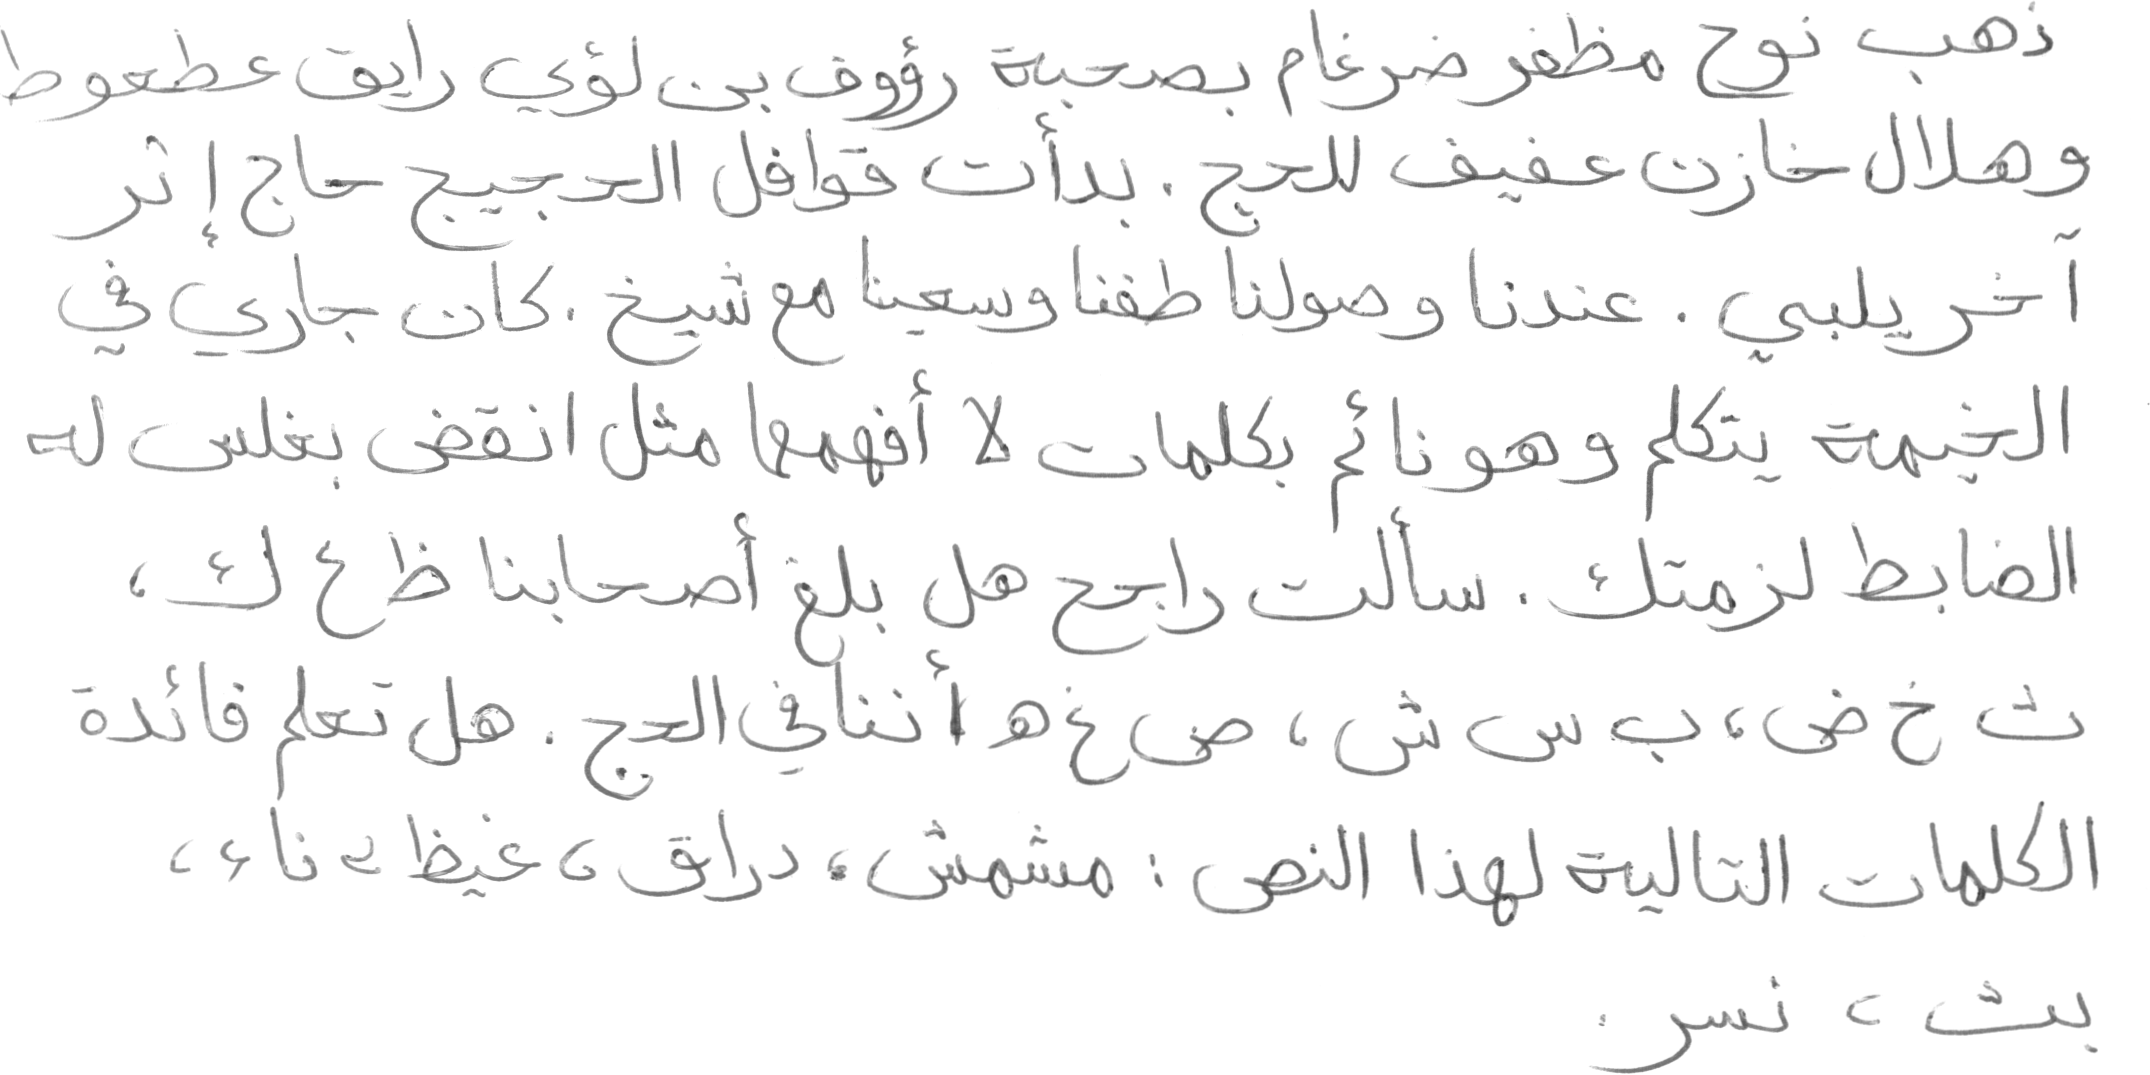 ذهب نوح مظفر ضرغام بصحبة رؤوف بن لؤي رايق عطعوط
وهلال خازن عفيف للحج . بدأت قوافل الحجيج حاج إثر
آخر يلبي . عندنا وصولنا طفنا وسعينا مع شيخ . كان جاري في
الخيمة يتكلم وهو نائم بكلمات لا أفهمها مثل انقض بغلس له
الضابط لزمتك . سألت راجح هل بلغ أصحابنا ظ ع ك ،
ث خ ض ، ب س ش ، ص غ ه أننا في الحج . هل تعلم فائدة
الكلمات التالية لهذا النص : مشمش ، دراق ، غيظ ، ناء ،
بث ، نسر .